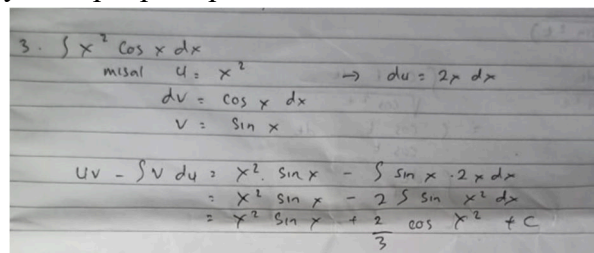 3. ∫ x² cos x dx
misal u = x² → du = 2x dx
dv = cos x dx
v = sin x
uv - ∫ v du = x². sin x - ∫ sin x · 2x dx
= x² sin x - 2 ∫ sin x² dx
= x² sin x + 2/3 cos x² + C